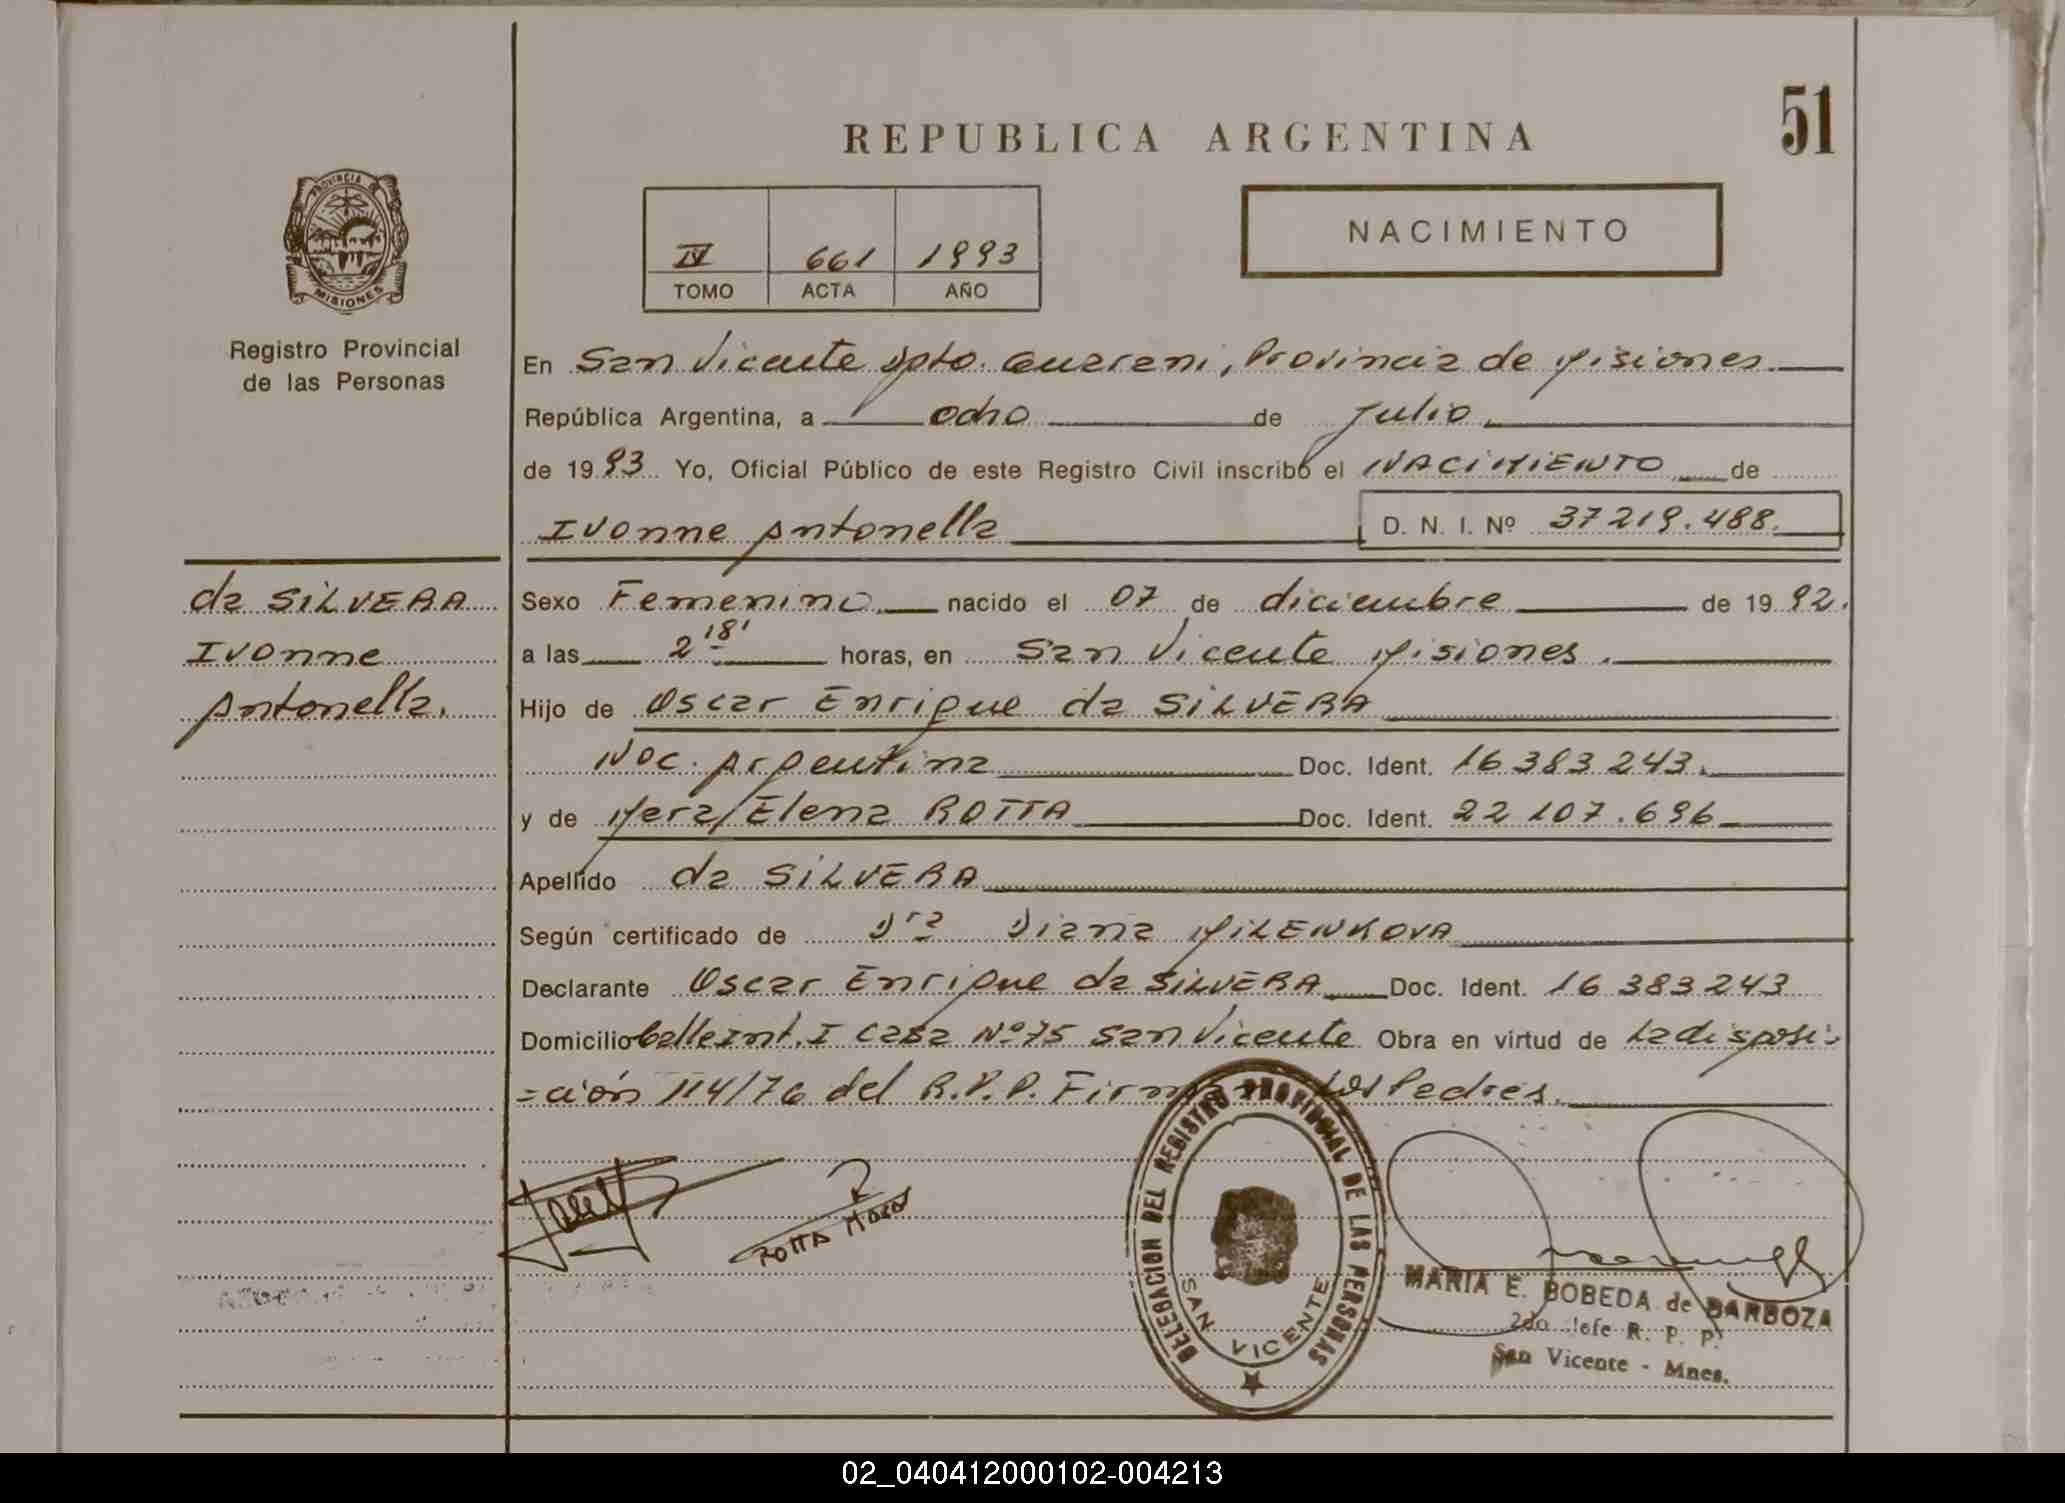 REPUBLICA ARGENTINA
51
PROVINCIA DE
MISIONES
Registro Provincial
de las Personas
IV 661 1993
TOMO ACTA AÑO
NACIMIENTO
En San Vicente Dpto. Guarani, Provincia de Misiones.
República Argentina, a ocho de Julio
de 1993 Yo, Oficial Público de este Registro Civil inscribo el NACIMIENTO de
Ivonne Antonella D. N. I. Nº 37219.488.
da SILVERA
Ivonne
Antonella.
Sexo Femenino nacido el 07 de diciembre de 1992.
a las 2 18' horas, en San Vicente Misiones.
Hijo de Oscar Enrique da SILVERA
Nac. Argentina Doc. Ident. 16383243.
y de Mara Elena ROTTA Doc. Ident. 22107.696
Apellido da SILVERA
Según certificado de Dra Diana MILENKOVA
Declarante Oscar Enrique da SILVERA Doc. Ident. 16383243
Domicilio Calle Int. I Casa Nº75 San Vicente Obra en virtud de La disposi-
=ción 114/76 del R.P.P. Firman Los Padres.
ROTTA Mara
DELEGACION DEL REGISTRO PROVINCIAL DE LAS PERSONAS
SAN VICENTE
MARIA E. BOBEDA de BARBOZA
2do Jefe R. P. P.
San Vicente - Mnes.
02_040412000102-004213